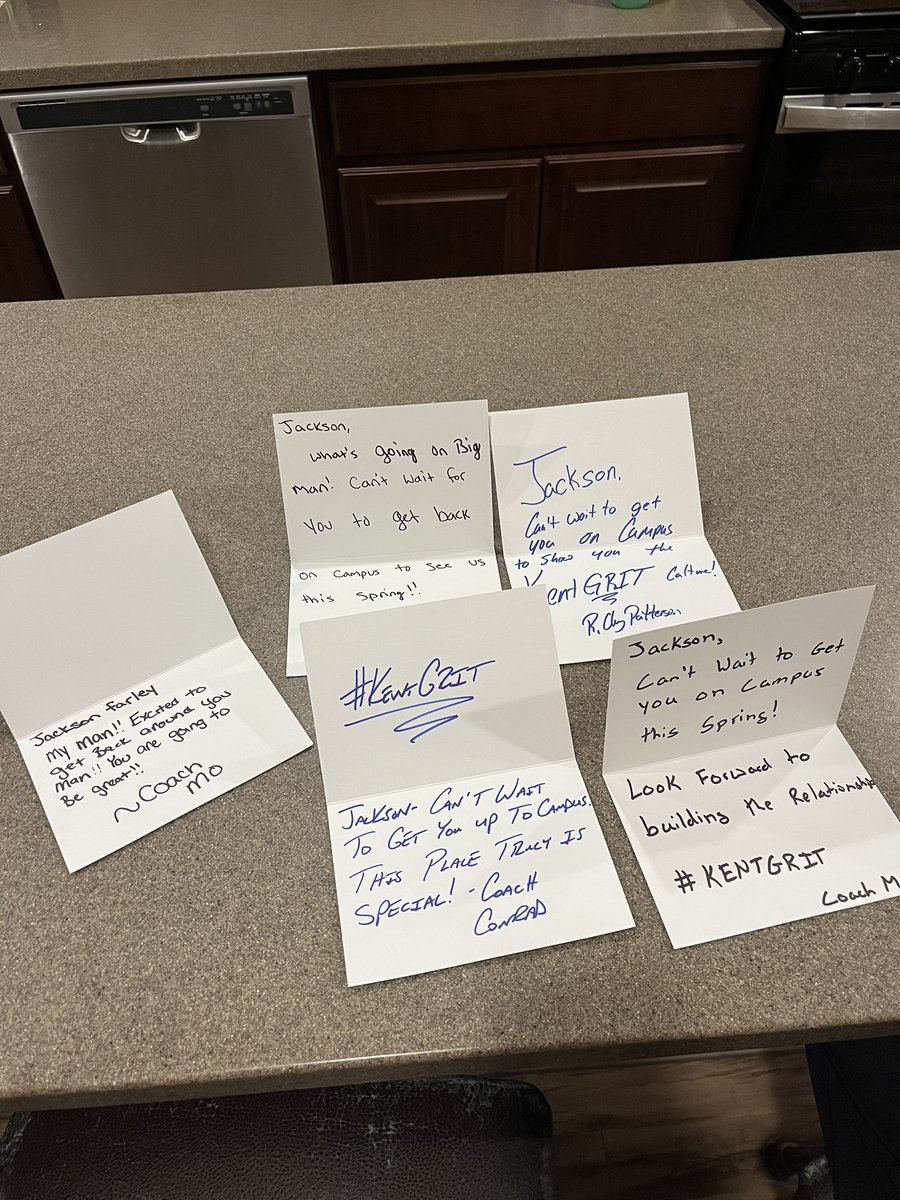 Jackson,
what's going on Big
man! Can't wait for
you to get back
on campus to see us
this Spring!!
Jackson,
Can't wait to get
you on Campus
to show you the
Kent GRIT Culture!
R. Clay Patterson
Jackson farley
My man!! Excited to
get Back around you
man!! You are going to
Be great!!
~Coach
Mo
#KENTGRIT
JACKSON- CAN'T WAIT
TO GET YOU UP TO CAMPUS.
THIS PLACE TRULY IS
SPECIAL! - COACH
CONRAD
Jackson,
Can't Wait to Get
you on Campus
this Spring!
Look Forward to
building the Relationship
#KENTGRIT
Coach M